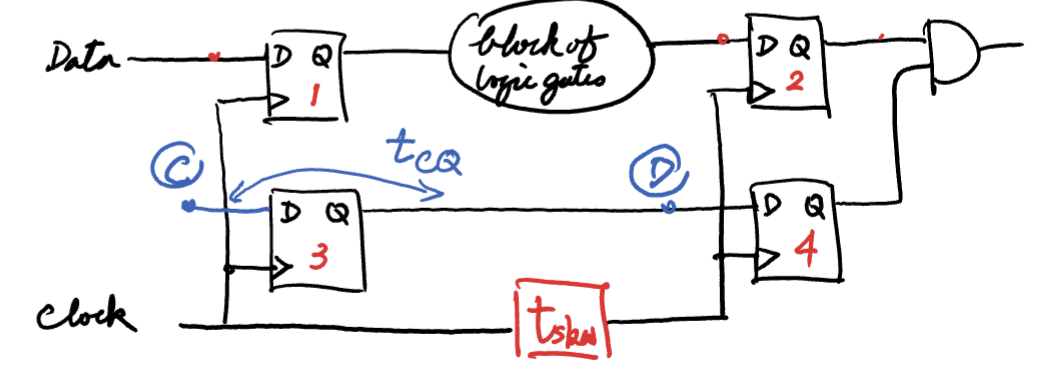 Data
D Q
1
block of
logic gates
D Q
2
C
tCQ
D
D Q
3
D Q
4
Clock
tskw